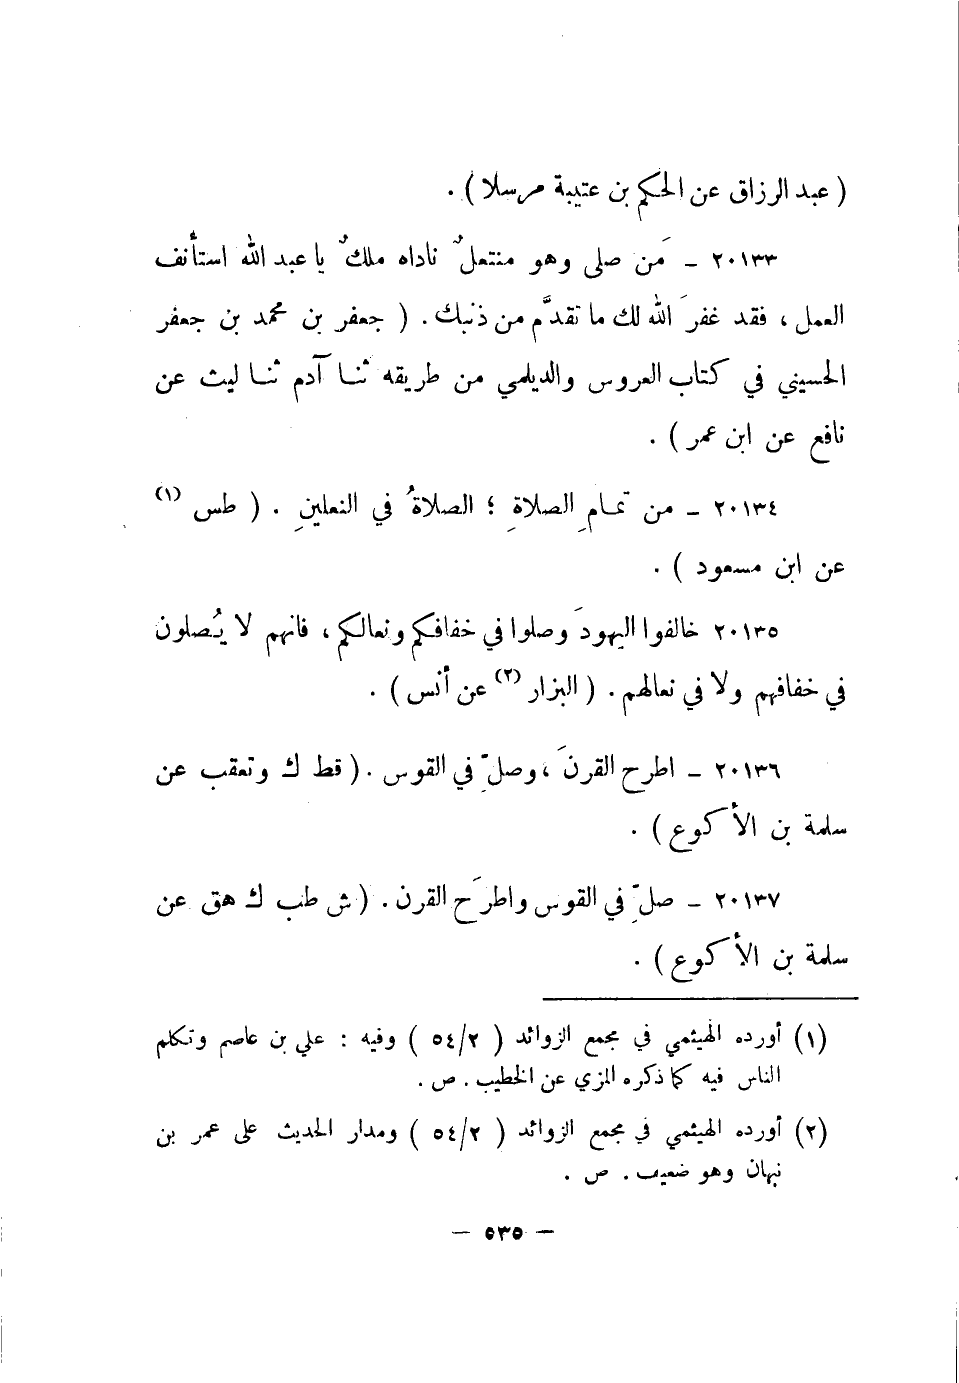 ( عبد الرزاق عن الحكم بن عتيبة مرسلا ) .
٢٠١٣٣ ـ مَن صلى وهو منتعلٌ ناداه ملكٌ يا عبد الله استأنف
العمل ، فقد غفرَ الله لك ما تقدَّم من ذنبك . ( جعفر بن محمد بن جعفر
الحسيني في كتاب العروس والديلمي من طريقه ثنا آدم ثنا ليث عن
نافع عن ابن عمر ) .
٢٠١٣٤ ـ من تمامِ الصلاةِ ؛ الصلاةُ في النعلينِ . ( طس (١)
عن ابن مسعود ) .
٢٠١٣٥ خالفوا اليهودَ وصلوا في خفافكم ونعالكم ، فانهم لا يُصلون
في خفافهم ولا في نعالهم . ( البزار (٢) عن أنس ) .
٢٠١٣٦ ـ اطرح القرنَ ، وصلِّ في القوس . ( قط ك وتعقب عن
سلمة بن الأكوع ) .
٢٠١٣٧ ـ صلِّ في القوس واطرَح القرن . ( ش طب ك هق عن
سلمة بن الأكوع ) .
(١) أورده الهيثمي في مجمع الزوائد ( ٢/٥٤ ) وفيه : علي بن عاصم وتكلم
الناس فيه كما ذكره المزي عن الخطيب . ص .
(٢) أورده الهيثمي في مجمع الزوائد ( ٢/٥٤ ) ومدار الحديث على عمر بن
نبهان وهو ضعيف . ص .
— ٥٣٥ —